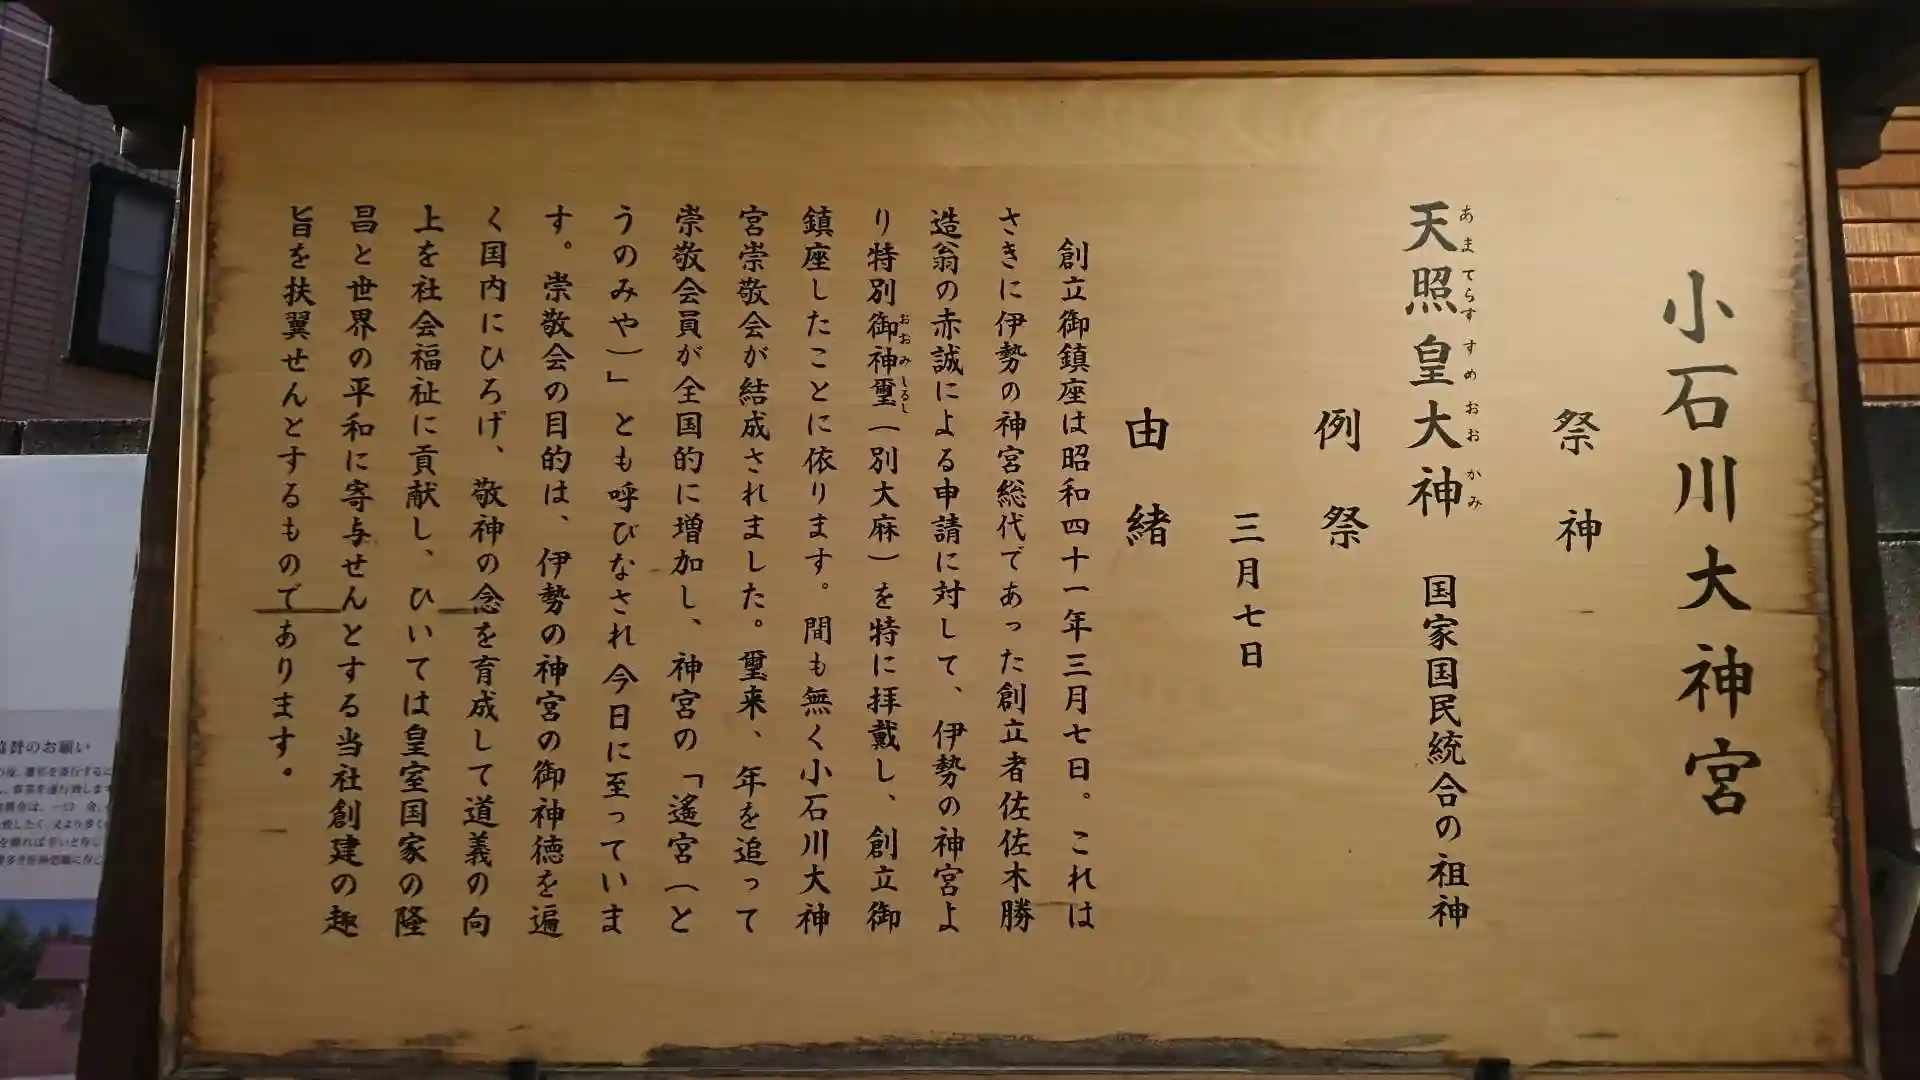 小石川大神宮
祭神
天照皇大神 国家国民統合の祖神
あまてらすすめおおかみ
例祭
三月七日
由緒
創立御鎮座は昭和四十一年三月七日。これは
さきに伊勢の神宮総代であった創立者佐佐木勝
造翁の赤誠による申請に対して、伊勢の神宮よ
り特別御神璽(別大麻)を特に拝戴し、創立御
おおみしるし
鎮座したことに依ります。間も無く小石川大神
宮崇敬会が結成されました。璽来、年を追って
崇敬会員が全国的に増加し、神宮の「遙宮(と
うのみや)」とも呼びなされ今日に至っていま
す。崇敬会の目的は、伊勢の神宮の御神徳を遍
く国内にひろげ、敬神の念を育成して道義の向
上を社会福祉に貢献し、ひいては皇室国家の隆
昌と世界の平和に寄与せんとする当社創建の趣
旨を扶翼せんとするものであります。
のお願い